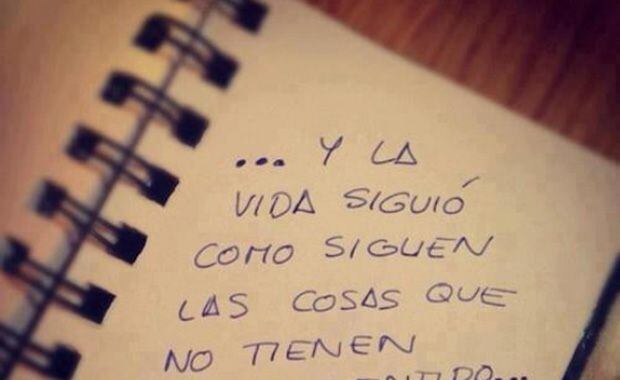 ... Y LA
VIDA SIGUIÓ
COMO SIGUEN
LAS COSAS QUE
NO TIENEN